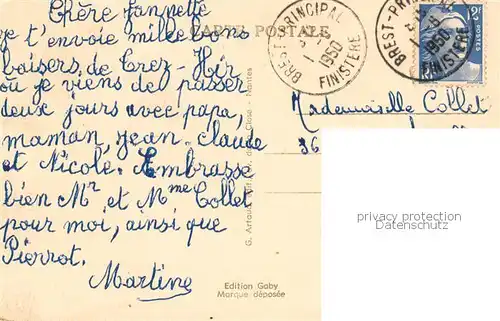 Chère fanpette
CARTE POSTALE
je t'envoie mille bons
baisers de Trez-Hir
où je viens de passer
deux jours avec papa,
maman, jean-claude
et Nicole. Embrasse
bien Mr et Mme Collet
pour moi, ainsi que
Pierrot.
Martine
BREST-PRINCIPAL
1950
FINISTERE
BREST-PRIN
1950
FINISTERE
POSTES
Mademoiselle Collet
36
privacy protection
Datenschutz
G. Artaud
Nantes
Edition Gaby
Marque déposée